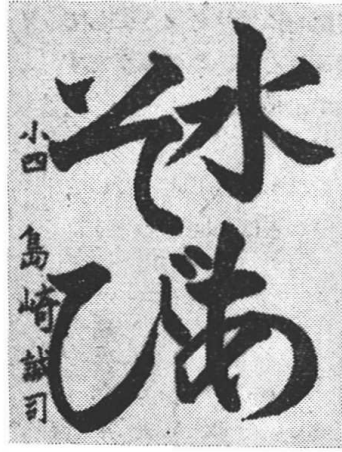 水あ
そび
小四 島崎誠司